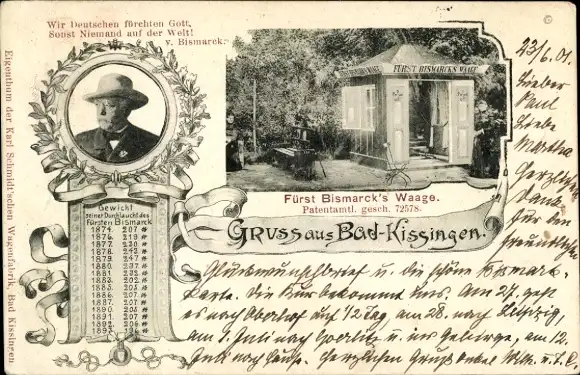 Wir Deutschen fürchten Gott,
Sonst Niemand auf der Welt!
v. Bismarck.
Eigenthum der Karl Schmidt'schen Wagenfabrik, Bad Kissingen
FÜRST BISMARCKS WAAGE.
Fürst Bismarck's Waage.
Patentamtl. gesch. 72578.
Gewicht
seiner Durchlaucht des
Fürsten Bismarck
1874. 207 ℔
1876. 219 ℔
1877. 230 ℔
1878. 242 ℔
1879. 247 ℔
1880. 237 ℔
1881. 232 ℔
1883. 202 ℔
1885. 203 ℔
1886. 207 ℔
1887. 207 ℔
1890. 205 ℔
1891. 209 ℔
1892. 206 ℔
1893. 196 ℔
Gruss aus Bad-Kissingen.
23/6.01
Lieber
Paul
Liebe
Martha
Herzlichen
Dank
für den
freundlichen
Glückwunschbrief u. die schöne Bismark-
Karte. Die Kur bekommt uns. Am 27. geht
es nach Oberhof auf 1/2 Tag, am 28. nach Leipzig,
am 1. Juli nach Goerlitz u. ins Gebirge, am 12.
Juli nach Hause. Herzlichen Gruß Onkel